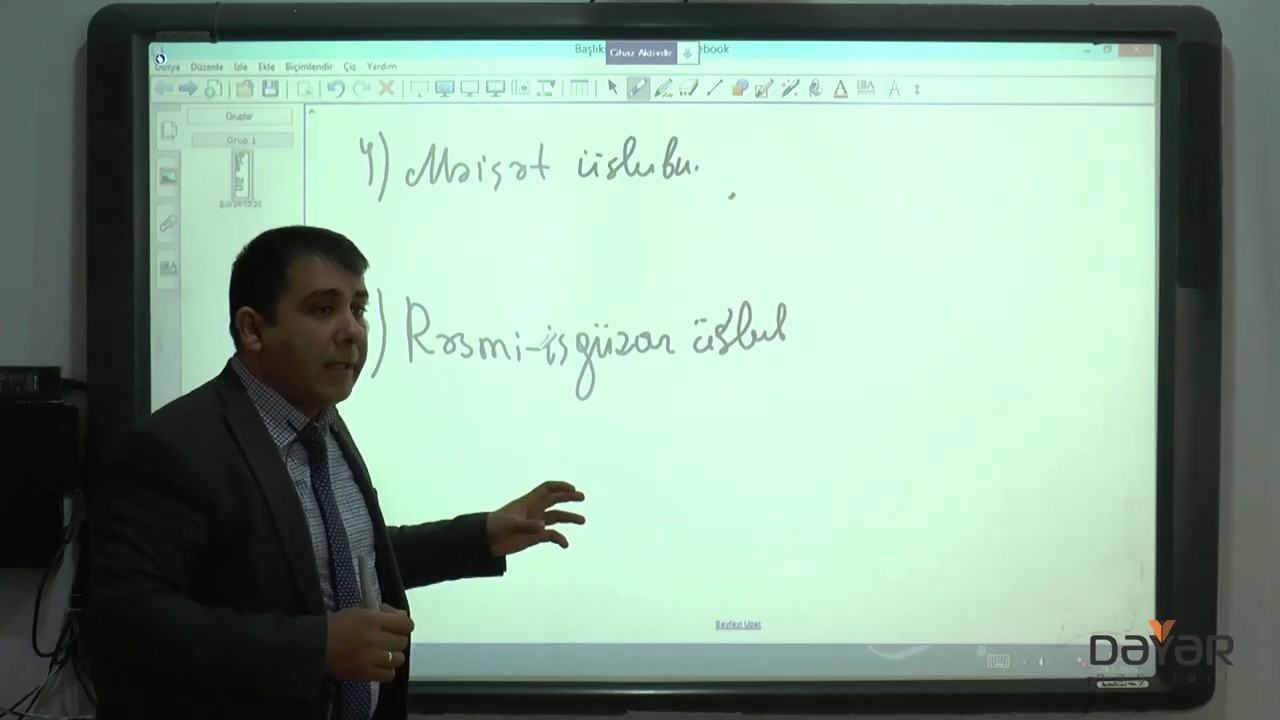 Cihaz Aktivdir
Dosya Düzenle İzle Ekle Biçimlendir Çiz Yardım
Gruplar
Grup 1
4) Məişət üslubu.
) Rəsmi-işgüzar üslub
DƏYƏR